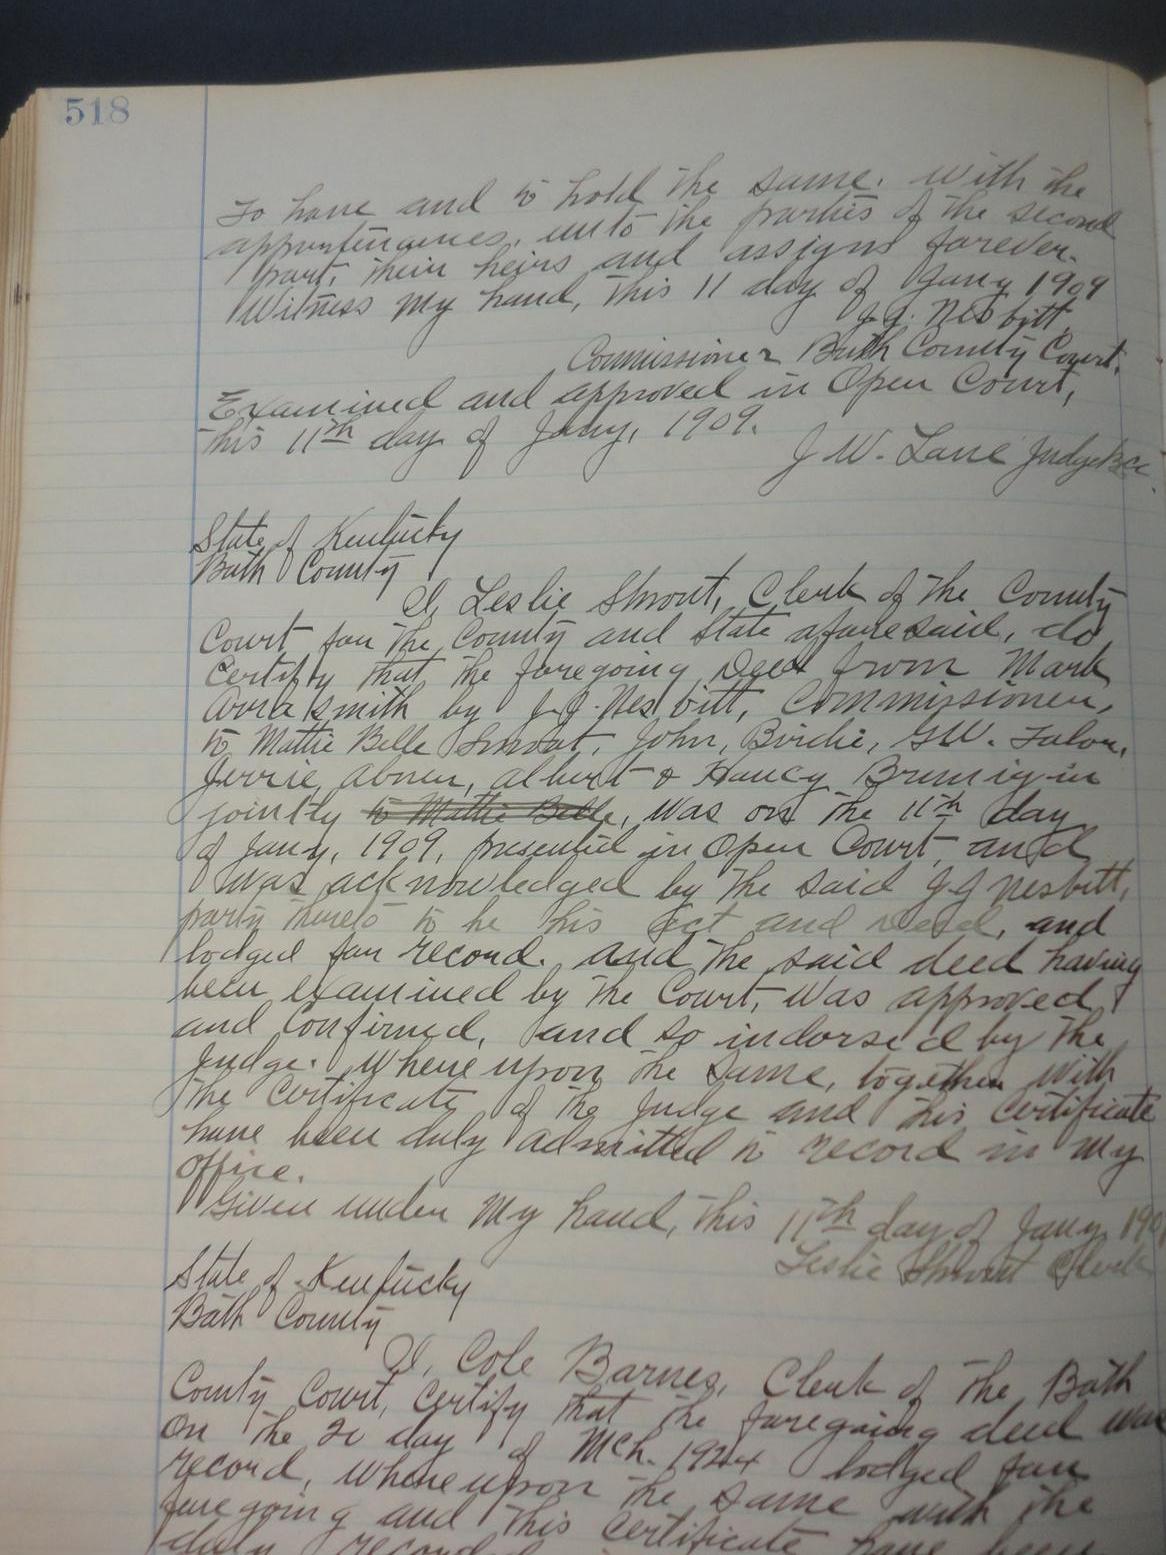 518
To have and to hold the same. with the
appurtenances, unto the parties of the second
part, their heirs and assigns forever.
Witness my hand, this 11 day of Jany 1909
J.J. Nesbitt
Commissioner Bath County Court.
Examined and approved in Open Court,
this 11th day of Jany, 1909.
J. W. Lane Judge B.C.C.
State of Kentucky
Bath County
I, Leslie Shrout, Clerk of the County
Court for the County and State aforesaid, do
Certify that the foregoing Deed from Mark
Arrasmith by J.J. Nesbitt, Commissioner,
to Mattie Belle Shrout, John, Birdie, G.W.
Jerrie, Abner, Albert & Nancy
jointly to Mattie Belle, was on the 11th day
of Jany, 1909, presented in Open Court, and
was acknowledged by the said J J Nesbitt,
party thereto to be his act and deed, and
lodged for record. and the said deed having
been examined by the Court, was approved
and Confirmed, and so indorsed by the
Judge. Where upon the same, together with
the Certificate of the Judge and this Certificate
have been duly admitted to record in my
office.
Given under my hand, this 11th day of Jany 190
Leslie Shrout Clerk
State of Kentucky
Bath County
I, Cole Barnes, Clerk of the Bath
County Court, Certify that the foregoing deed was
On the 20 day of Mch. 1924 lodged for
record, whereupon the same with the
foregoing and this Certificate have been
duly recorded